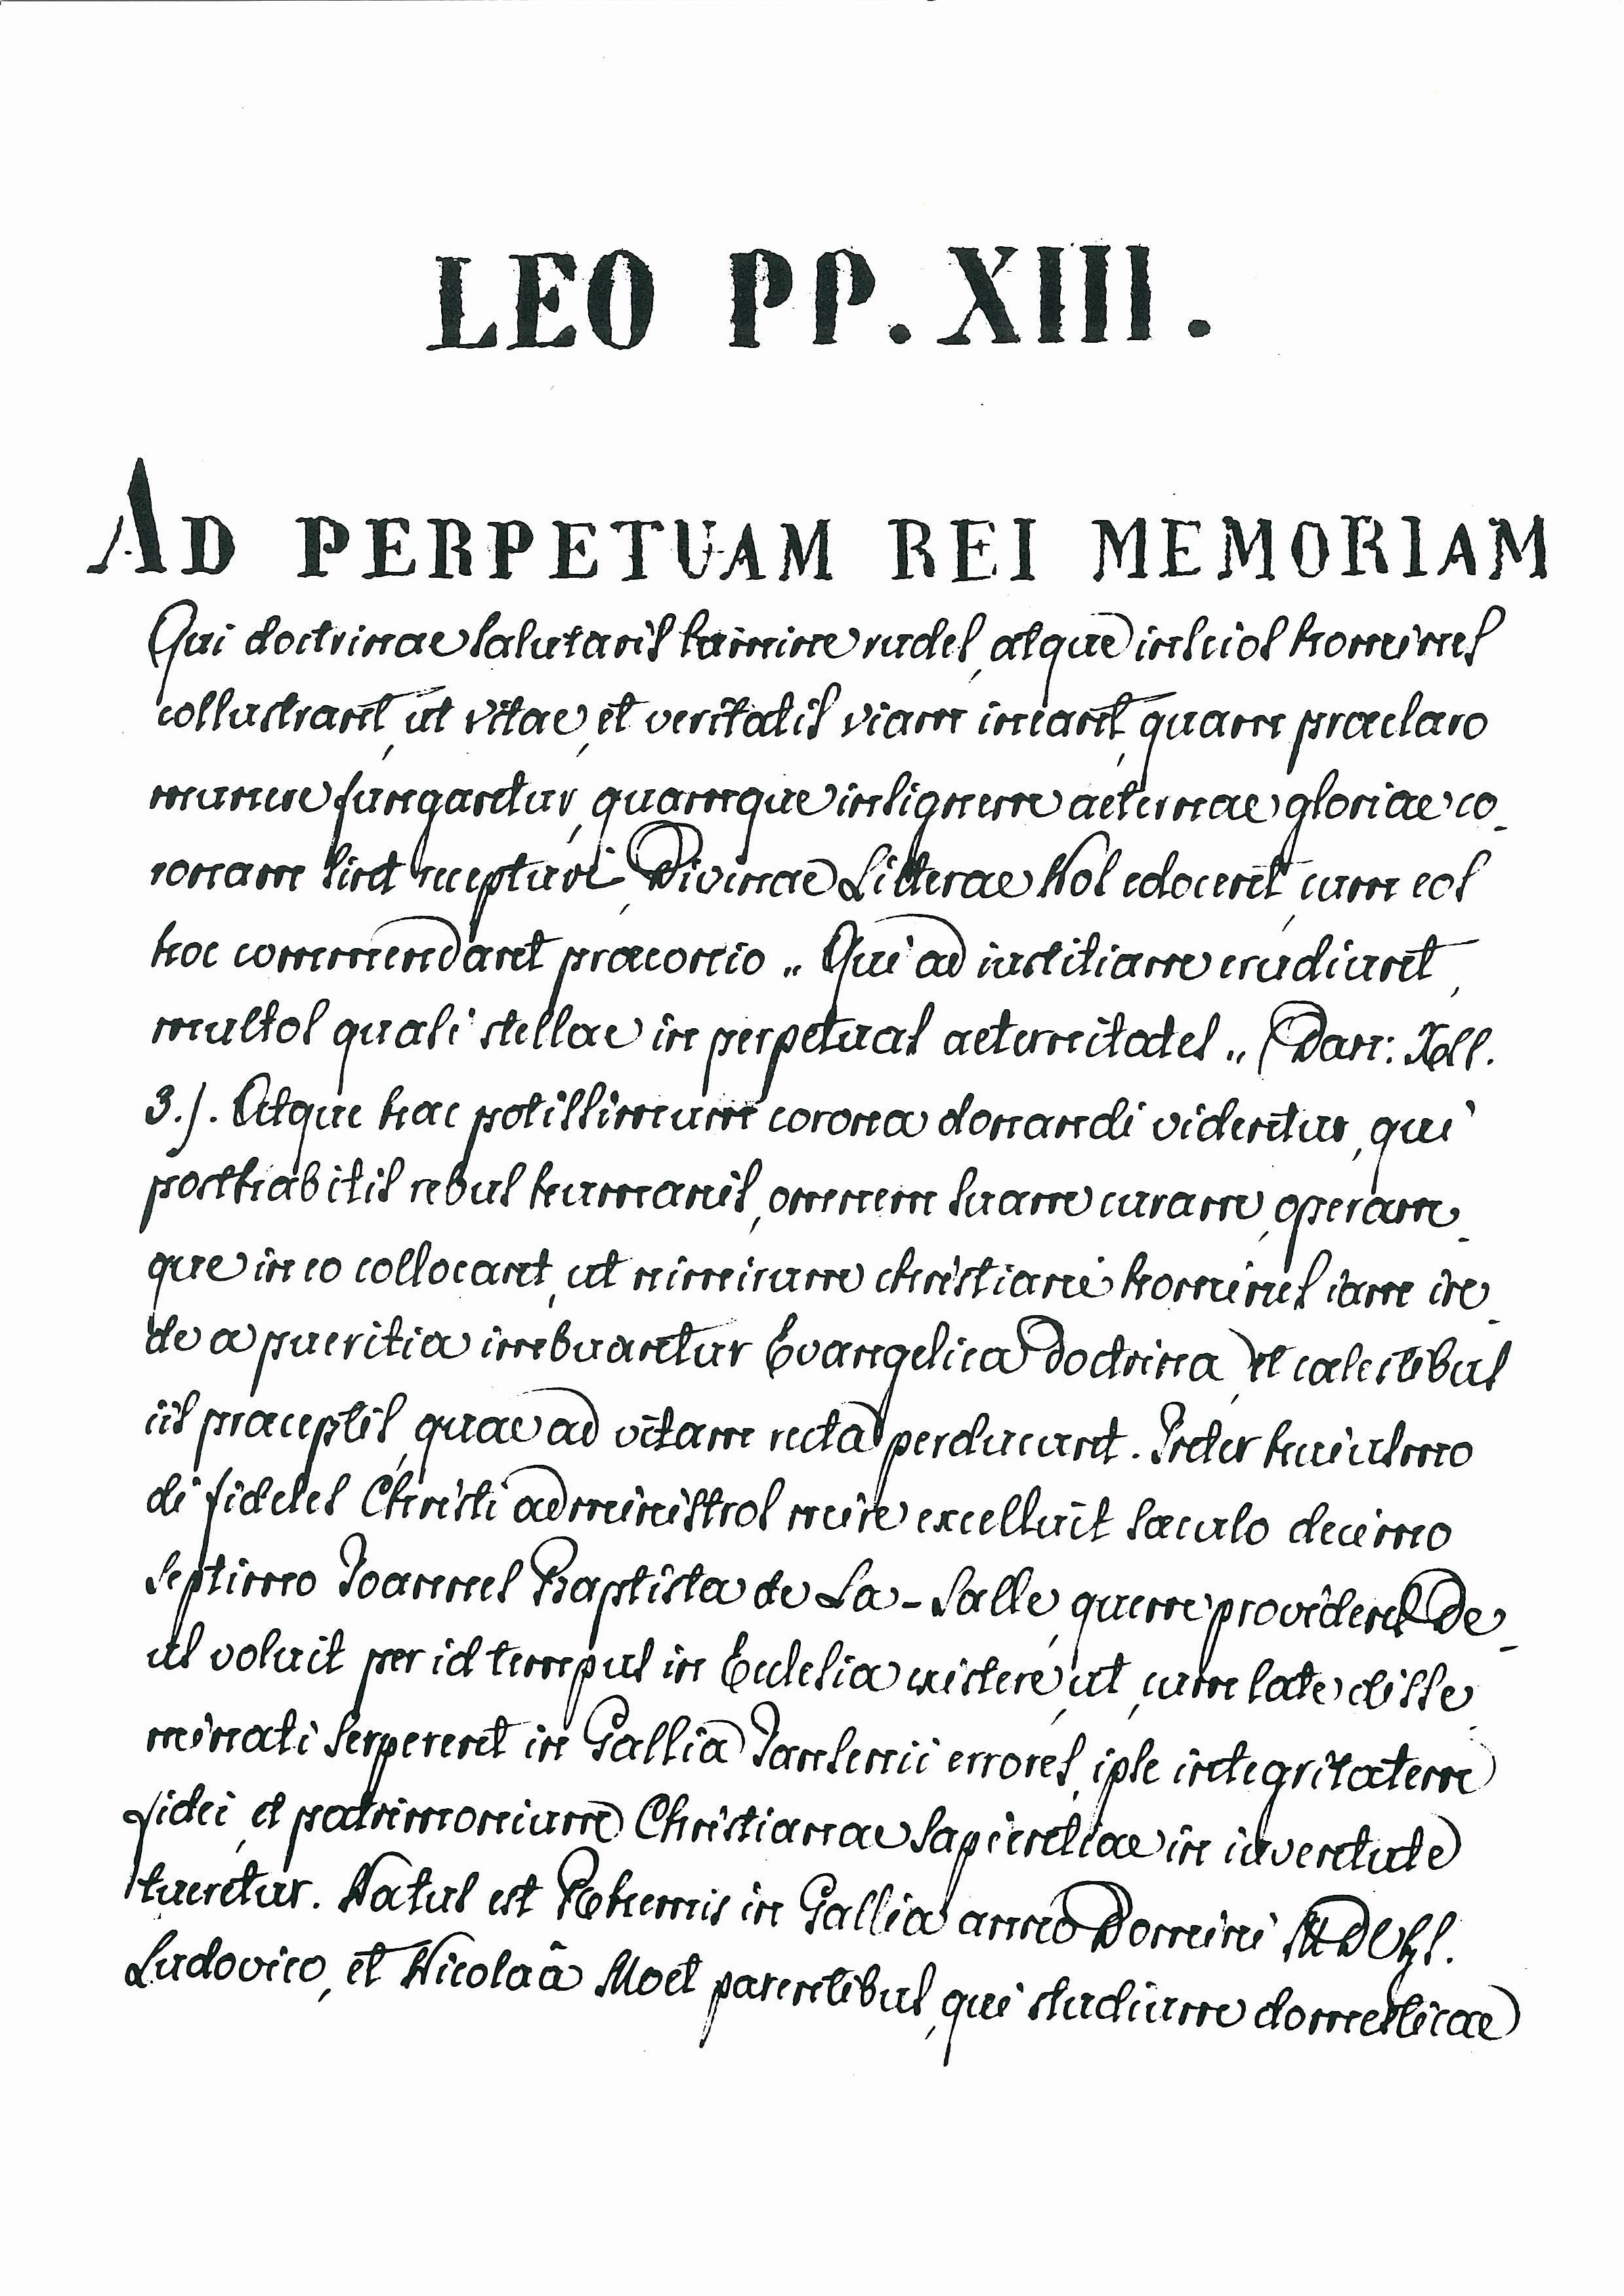 LEO PP. XIII.
AD PERPETUAM REI MEMORIAM
Qui doctrinae salutaris lumine rudes, atque inscios homines
collustrant, ut vitae, et veritatis viam ineant, quam praeclaro
munere fungantur, quamque insignem aeternae gloriae co-
ronam sint recepturi, Divinae Litterae Nos edocent, cum eos
hoc commendant praeconio „ Qui ad iustitiam erudiunt,
multos quasi stellae in perpetuas aeternitates „ (Dan: XII.
3.). Atque hac potissimum corona donandi videntur, qui
posthabitis rebus humanis, omnem suam curam, operam-
que in eo collocant, ut nimirum christiani homines iam in-
de a pueritia imbuantur Evangelica doctrina, et calestibus
iis praeceptis, quae ad vitam recta perducunt. Inter huiusmo
di fideles Christi administros mire excelluit saeculo decimo
septimo Ioannes Baptista de La-Salle, quem providens De-
us voluit per id tempus in Ecclesia existere, ut, cum late disse-
minati serperent in Gallia Iansenii errores, ipse integritatem
fidei, et patrimonium Christianae sapientiae in iuventute
tueretur. Natus est Rhemis in Gallia anno Domini MDCLI.
Ludovico, et Nicolaâ Moet parentibus, qui studium domesticae